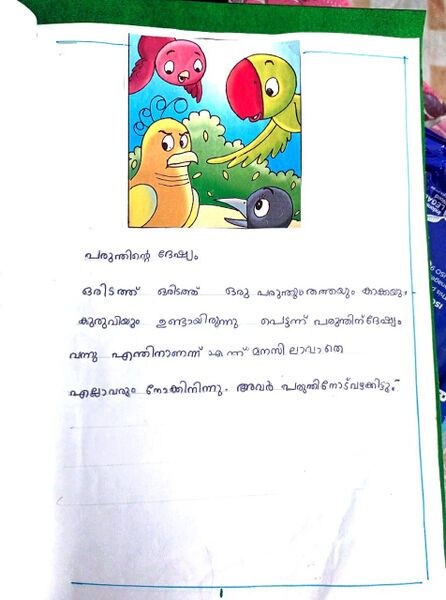 പരുന്തിന്റെ ദേഷ്യം
ഒരിടത്ത് ഒരിടത്ത് ഒരു പരുന്തും തത്തയും കാക്കയും
കുരുവിയും ഉണ്ടായിരുന്നു പെട്ടന്ന് പരുന്തിന് ദേഷ്യം
വന്നു എന്തിനാണന്ന് എന്ന് മനസിലാവാതെ
എല്ലാവരും നോക്കിനിന്നു. അവർ പരുന്തിനോട് വഴക്കിട്ടു.
1